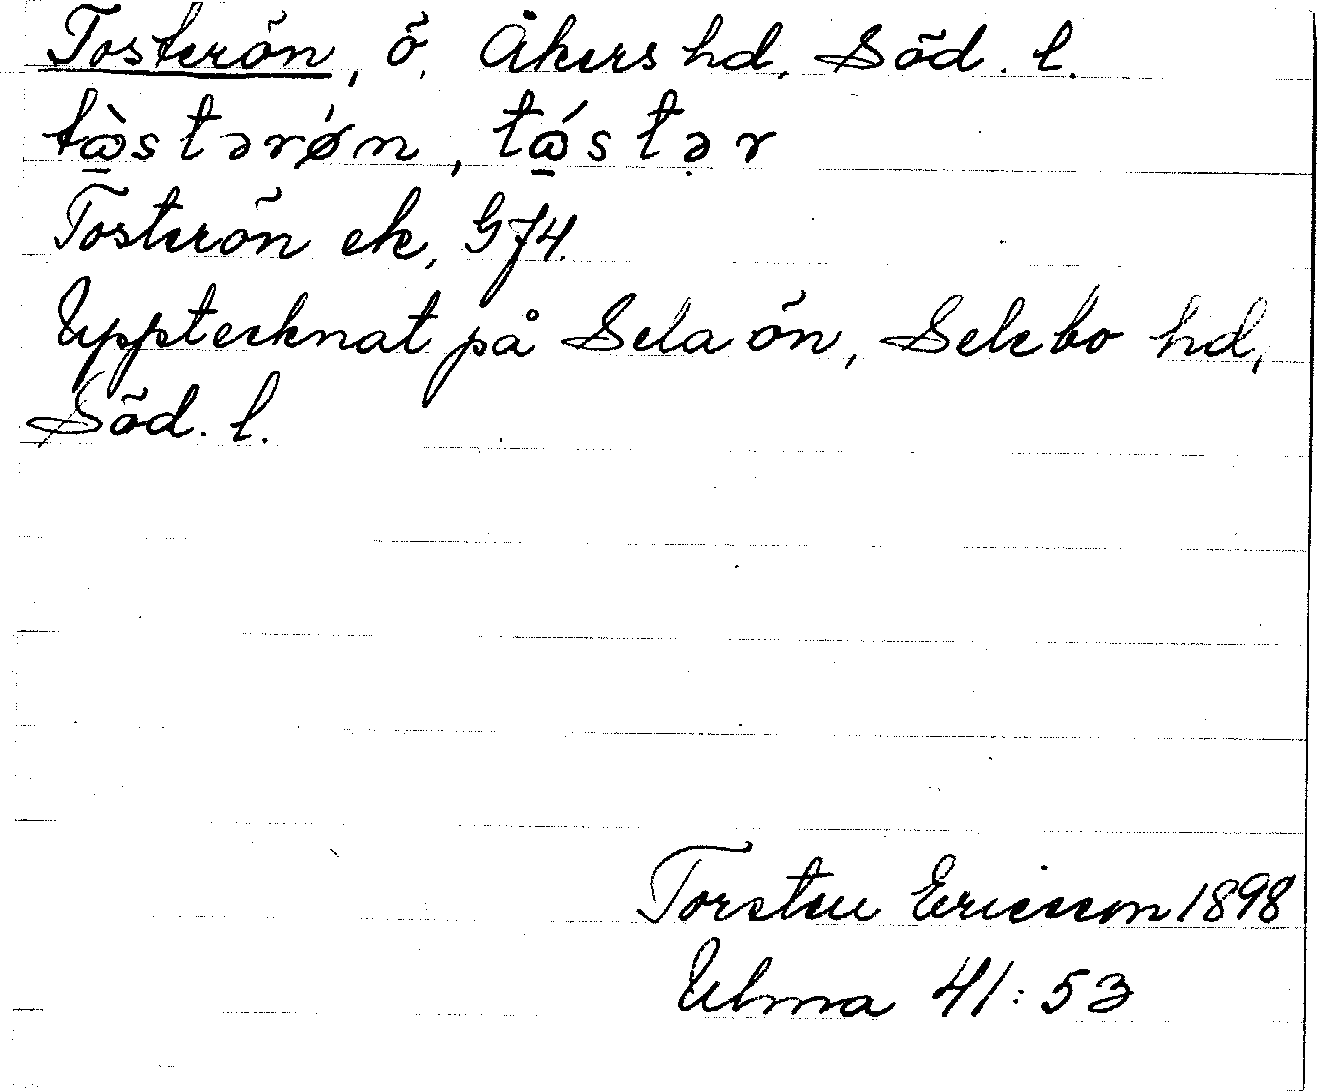 Tosterön, ö, Åkers hd, Söd. l.
tɷ̱̀stərǿn, tɷ̱́stər
Tosterön ek, G 74.
Upptecknat på Selaön, Selebo hd,
Söd. l.
Torsten Ericsson 1898
Ulma 41:53